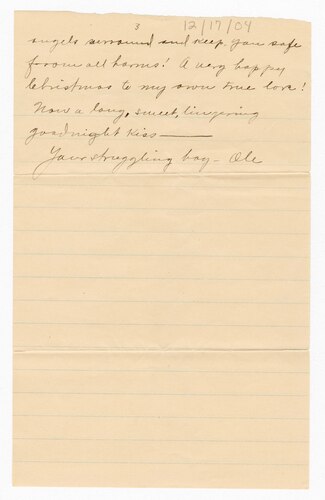 3 12/17/04
angels surround and keep you safe
from all harms! A very happy
Christmas to my own true love!
Now a long, sweet, lingering
goodnight kiss ———
Your struggling boy - Ole